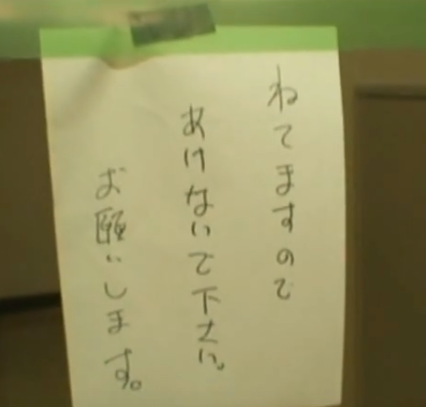 ねてますので
あけないで下さい。
お願いします。